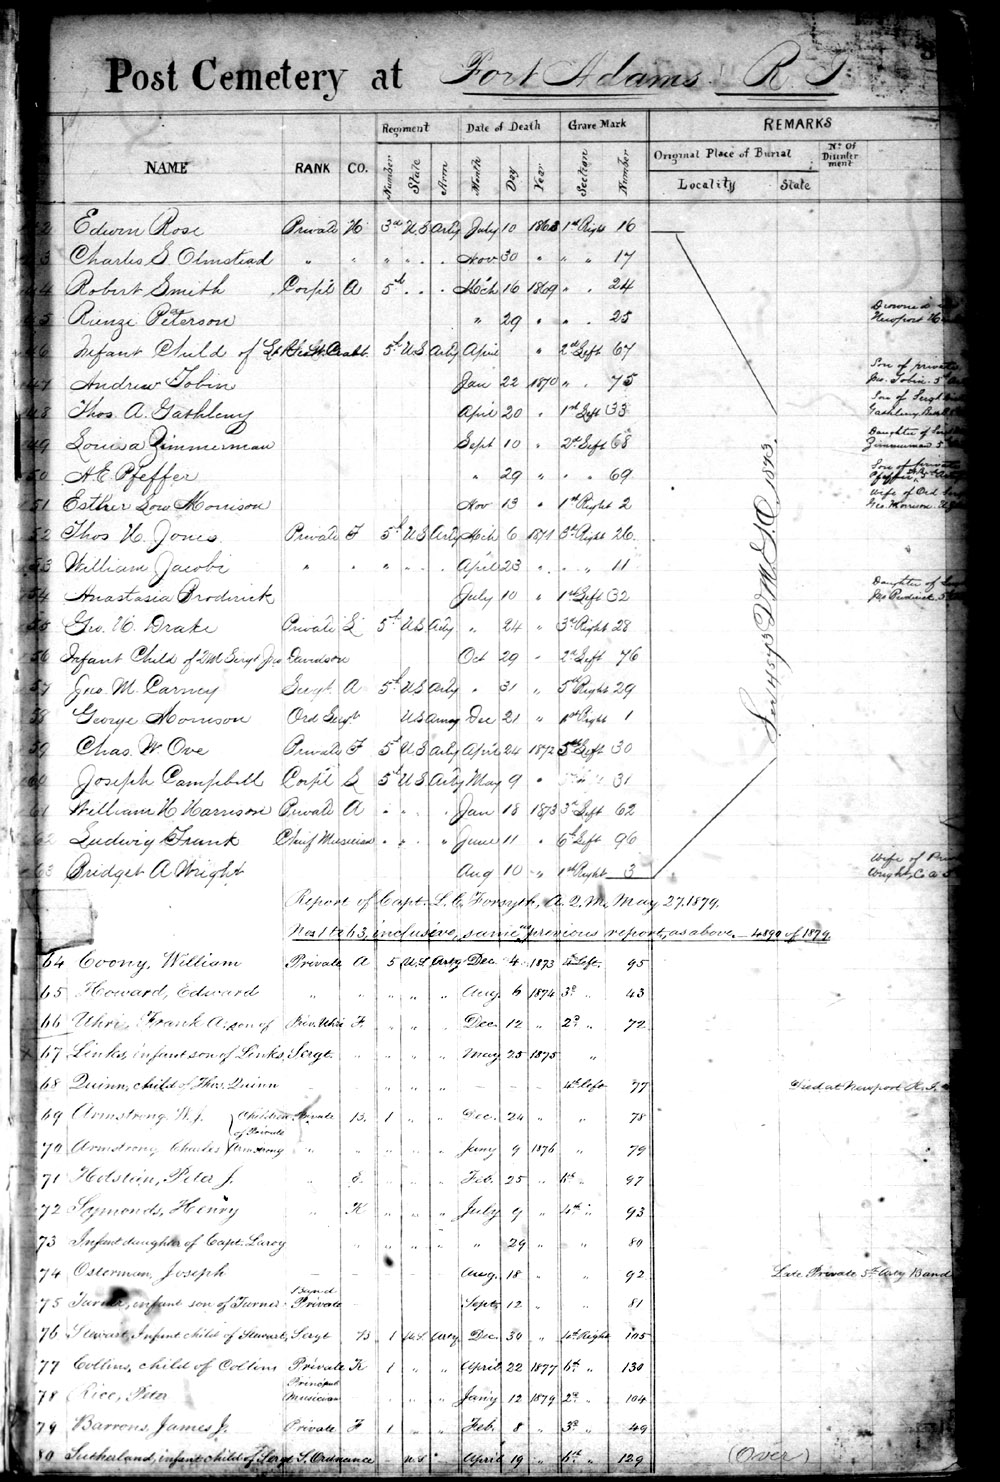 Post Cemetery at Fort Adams R. I.
NAME RANK CO. Regiment Date of Death Grave Mark REMARKS
Number State Arm Month Day Year Section Number Original Place of Burial No. Of Disinterment
Locality State
Edwin Rose Private H 3rd U S Arty July 10 1868 1st Right 16
Charles S Olmstead " " " " . . Nov 30 " " " 17
Robert Smith Corp'l A 5th . . . Mch 16 1869 " . 24
Rienze Peterson " 29 " " . 25 Drowned Newport
46 Infant Child of Lt Crabb 5th U S Arty April " 2nd Left 67
47 Andrew Tobin Jan 22 1870 " . 75 Son of private Jno. Tobin 5th
48 Thos. A. Gathleny April 20 " 1st Left 33 Son of Sergt Gathleny
49 Louisa Zimmerman Sept 10 " 2nd Left 68 Daughter of Zimmerman 5th
50 H E Pfeffer " 29 " " . 69 Son of Private Pfeffer
51 Esther Low Morrison Nov 13 " 1st Right 2 Wife of Ord Geo. Morrison
52 Thos H. Jones Private F 5th U S Arty Mch 6 1871 3rd Right 26
53 William Jacobi " " " " . . April 23 " . " " 11
54 Anastasia Brodrick July 10 " 1st Left 32 Daughter of
55 Geo. H. Drake Private L 5th U S Arty " 24 " 3rd Right 28
56 Infant Child of 2M Sergt Jno Davidson Oct 29 " 2nd Left 76
57 Jno. M. Carney Sergt A 5th U S Arty " 31 " 5th Right 29
58 George Morrison Ord Sergt U S Army Dec 21 " 1st Right 1
59 Chas. W. Ove Private F 5th U S Arty April 24 1872 5th Left 30
60 Joseph Campbell Corp'l L 5th U S Arty May 9 " 31
61 William H Harrison Private A " " . . Jan 18 1873 3rd Left 62
62 Ludwig Frank Chief Musician " . . " June 11 " 6th Left 96
63 Bridget A Wright Aug 10 " 1st Right 3 Wife of Wright, Co. A
1873
Report of Capt. L. C. Forsyth, A. Q. M. May 27, 1879.
Nos 1 to 63, inclusive, same in previous report, as above. 4890 of 1879.
64 Coony, William Private A 5 U.S. Arty Dec. 4 1873 4th Left. 95
65 Howard, Edward " " " " " Aug. 6 1874 3d " 43
66 Uhri, Frank A. son of Priv. Uhri F. " " " Dec. 12 " 2d " 72
67 Links, infant son of Links, Sergt. " " " May 25 1875 "
68 Quinn, child of Thos. Quinn – – " " " – – – 4th Left 77 Died at Newport R. I.
69 Armstrong, W. J. Children of Private Armstrong Private B. 1 " " Dec. 24 " " 78
70 Armstrong Charles " " " " " Jany 9 1876 " 79
71 Holstein, Peter J. " " " " Feb. 25 " 6th " 97
72 Symonds, Henry " K " " " July 9 " 4th " 93
73 Infant daughter of Capt. Leroy " " " " " 29 " " 80
74 Osterman, Joseph – – – – – Aug. 18 " " 92 Late Private 5th Arty Band
75 Turner, infant son of Turner Band Private – – – – Sept. 12 " " 81
76 Stewart, Infant child of Stewart, Sergt B 1 U.S. Arty. Dec. 30 " 4th Right 105
77 Collins, child of Collins Private K 1 " " April 22 1877 6th " 130
78 Rice, Peter Principal Musician – " " " Jany 12 1879 2d " 104
79 Barrons, James J. Private F 1 " " Feb. 8 " 3d " 49
80 Sutherland, infant child of Sergt S. Ordnance – U.S " April 19 " 6th " 129 (Over)